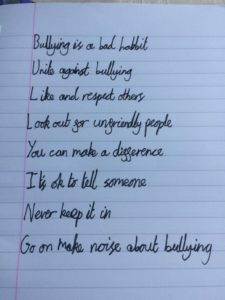 Bullying is a bad habbit
Unite against bullying
Like and respect others
Look out for unfriendly people
You can make a difference.
It's ok to tell someone
Never keep it in
Go on make noise about bullying